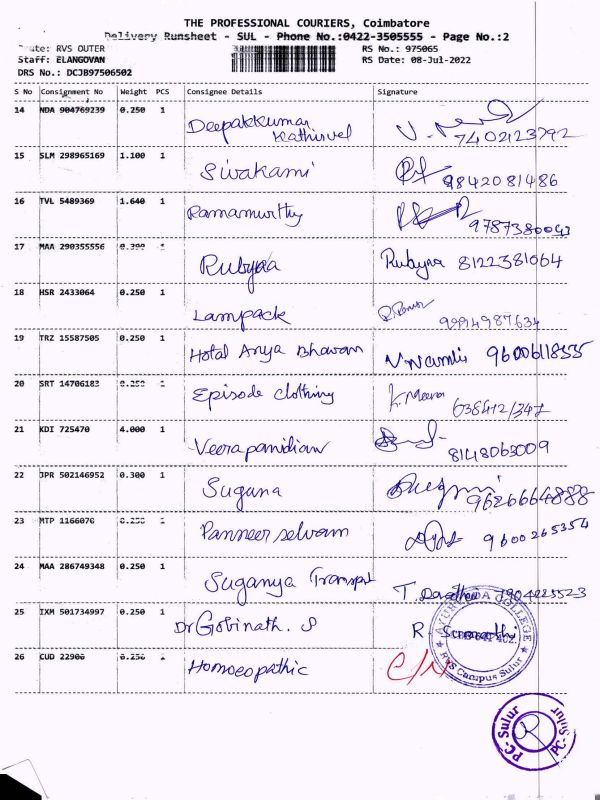 THE PROFESSIONAL COURIERS, Coimbatore
Delivery Runsheet - SUL - Phone No.:0422-3505555 - Page No.:2
Route: RVS OUTER RS No.: 975065
Staff: ELANGOVAN RS Date: 08-Jul-2022
DRS No.: DCJB97506502
S No Consignment No Weight PCS Consignee Details Signature
14 NDA 904769239 0.250 1 Deepakkumar Kathirvel 7402123792
15 SLM 298965169 1.100 1 Sivakami 9842081486
16 TVL 5489369 1.640 1 Ramamurthy 9787380043
17 MAA 290355556 0.300 1 Rubyna Rubyna 8122381064
18 HSR 2433064 0.250 1 Lampack 9994987634
19 TRZ 15587505 0.250 1 Hotal Arya Bhavan 9600618555
20 SRT 14706183 0.250 1 Episode clothing K. Meena 638412/347
21 KDI 725470 4.000 1 Veerapandian 8148063009
22 JPR 502146952 0.300 1 Sugana 9626664888
23 MTP 1166070 0.250 1 Panneer selvam 9600265354
24 MAA 286749348 0.250 1 Suganya Transport T.
25 IXM 501734997 0.250 1 Dr Gobinath. S R.
26 CUD 22906 0.250 1 Homoeopathic
AYURVEDA COLLEGE
RVS Campus Sulur
PC-Sulur
PC-Sulur